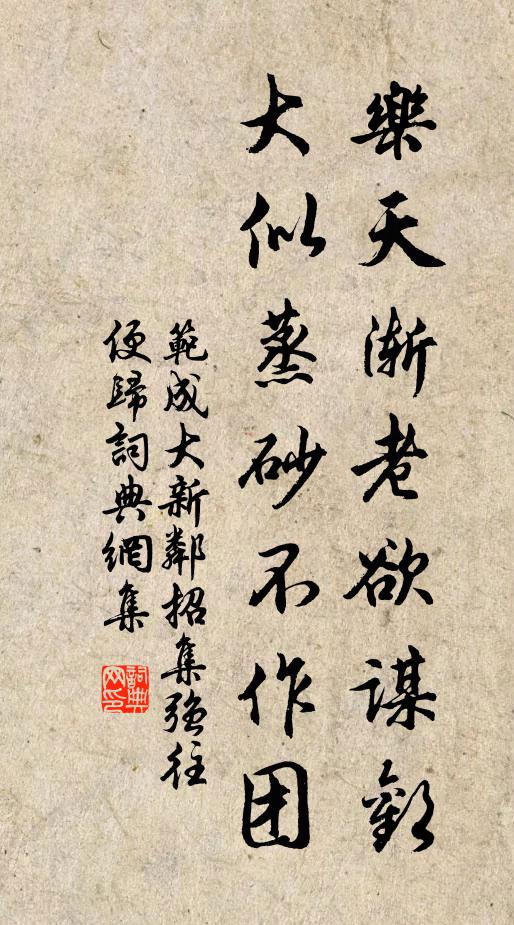 樂天漸老欲謀歡
大似蒸砂不作团
範成大新鄰招集强往
便歸詞典網集
詞典
网印